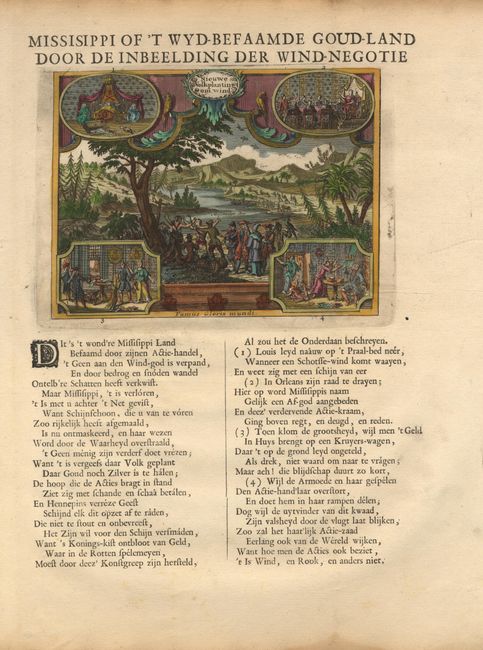 MISSISIPPI OF 'T WYD-BEFAAMDE GOUD-LAND
DOOR DE INBEELDING DER WIND-NEGOTIE
1
2
Nieuwe
Volkplanting
om wind
Fumus Gloria mundi.
3
4
DIt 's 't wond're Missisippi Land
Befaamd door zijnen Actie-handel,
't Geen aan den Wind-god is verpand,
En door bedrog en snóden wandel
Ontelb're Schatten heeft verkwist.
Maar Missisippi, 't is verlóren,
't Is met u achter 't Net gevist,
Want Schijnschoon, die u van te vóren
Zoo rijkelijk heeft afgemaald,
Is nu ontmaskeerd, en haar wezen
Word door de Waarheyd overstraald,
't Geen ménig zijn verderf doet vrezen;
Want 't is vergeefs daar Volk geplant
Daar Goud noch Zilver is te hálen;
De hoop die de Acties bragt in stand
Ziet zig met schande en schah betálen,
En Hennepins verréze Geest
Schijnd elk dit opzet af te ráden,
Die niet te stout en onbevreest,
Het Zijn wil voor den Schijn versmáden,
Want 's Konings-kist ontbloot van Geld,
Waar in de Rotten spélemeyen,
Moest door deez' Konstgreep zijn hersteld,
Al zou het de Onderdaan beschreyen.
(1) Louis leyd naàuw op 't Praal-bed neêr,
Wanneer een Schotsse-wind komt waayen,
En weet zig met een schijn van eer
(2) In Orleans zijn raad te drayen;
Hier op word Missisippis naam
Gelijk een Af-god aangebeden
En deez' verdervende Actie-kraam,
Ging boven regt, en deugd, en reden.
(3) Toen klom de grootsheyd, wijl men 't Geld
In Huys brengt op een Kruyers-wagen,
Daar 't op de grond leyd ongeteld,
Als drek, niet waard om naar te vrágen;
Maar ach! die blijdschap duurt zo kort,
(4) Wijl de Armoede en haar gespélen
Den Actie-hand'laar overstort,
En doet hem in haar rampen délen;
Dog wijl de uytvinder van dit kwaad,
Zijn valsheyd door de vlugt laat blijken,
Zoo zal het haat'lijk Actie-zaad
Eerlang ook van de Wéreld wijken,
Want hoe men de Acties ook beziet,
't Is Wind, en Rook, en anders niet.